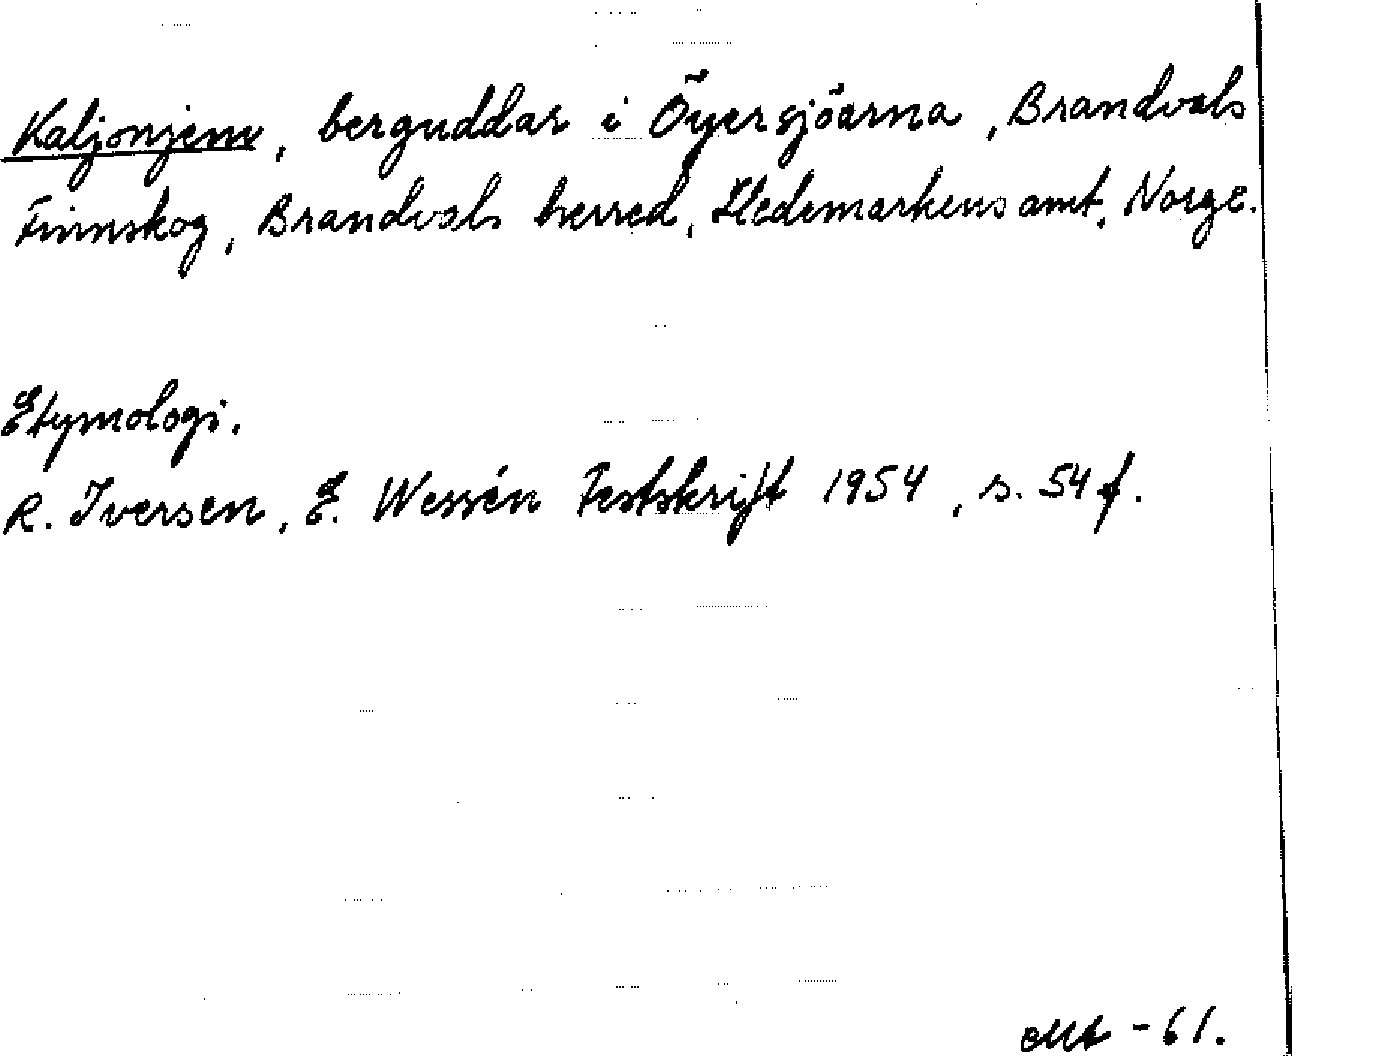 Kaljonjene, berguddar i Öyersjöarna, Brandvals
Finnskog, Brandvals herred, Hedemarkens amt, Norge.
Etymologi.
R. Iversen, E. Wessén Festskrift 1954, s. 54 f.
-61.